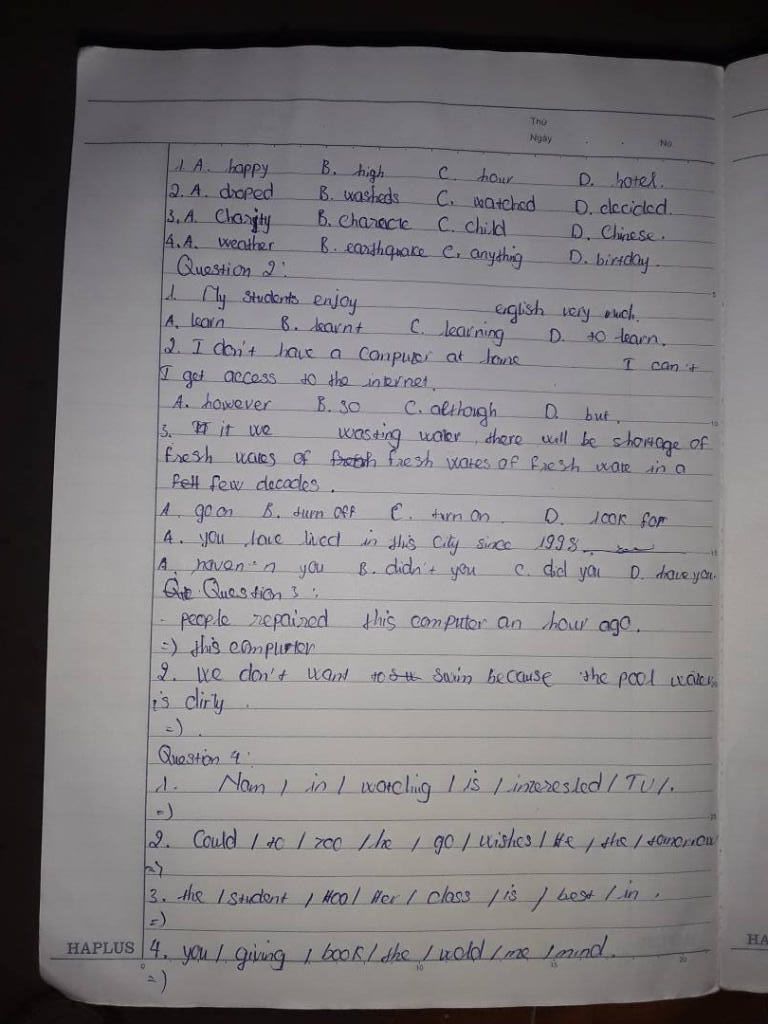 Thứ
Ngày . . No
1. A. happy B. high C. hour D. hotel.
2. A. droped B. washeds C. watched D. decided.
3, A. Charity B. characte C. child D. Chinese.
4. A. weather B. earthquake C, anything D. birtday.
Question 2:
1. My students enjoy english very much.
A. learn B. learnt C. learning D. to learn.
2. I don't have a computer at home I can't
I get access to the internet.
A. however B. so C. although D. but.
3. it we wasting water, there will be shortage of
fresh wates of fresh wates of fresh wate in a
few decades.
A. go on B. turn off C. turn on D. look for
4. you have lived in this city since 1998.
A. haven'n you B. didn't you C. did you D. have you.
Question 3:
. people repaired this computor an hour ago.
=) this computor
2. We don't want to swin because the pool water
is dirty
=).
Question 4:
1. Nam / in / watching / is / interested / TV /.
=)
2. Could / to / zoo / he / go / wishes / He / the / tomorrow
=)
3. the / student / Hoa / Her / class / is / best / in .
=)
HAPLUS 4. you / giving / book / the / wold / me / mind.
=)
0 10 15 20
HA